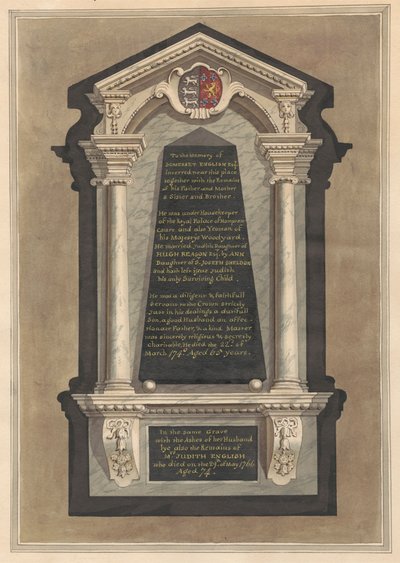 To the Memory of
SOMERSET ENGLISH Esq.
interred near this place
together with the Remains
of his Father and Mother
a Sister and Brother.
He was under Housekeeper
of the Royal Palace of Hampton
Court and also Yeoman of
his Majestys Woodyard
He married Judith Daughter of
HUGH REASON Esq. by ANN
Daughter of Sr. JOSEPH SHELDON
and hath left Issue Judith
his only Surviving Child.
He was a diligent & faithfull
Servant to the Crown strictly
Just in his dealings a dutifull
Son, a good Husband an affec-
tionate Father, & a kind Master
was sincerely religious & secretly
Charitable, He died the 22d. of
March Aged 65 years.
In the same Grave
with the Ashes of her Husband
lye also the Remains of
Mrs. JUDITH ENGLISH
who died on the of May 1766
Aged 74.